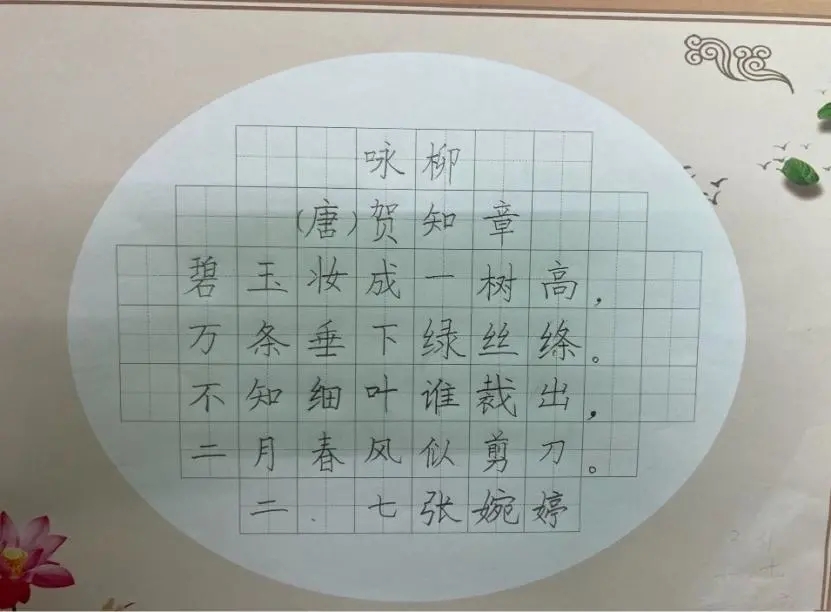 咏柳
(唐)贺知章
碧玉妆成一树高，
万条垂下绿丝绦。
不知细叶谁裁出，
二月春风似剪刀。
二.七张婉婷